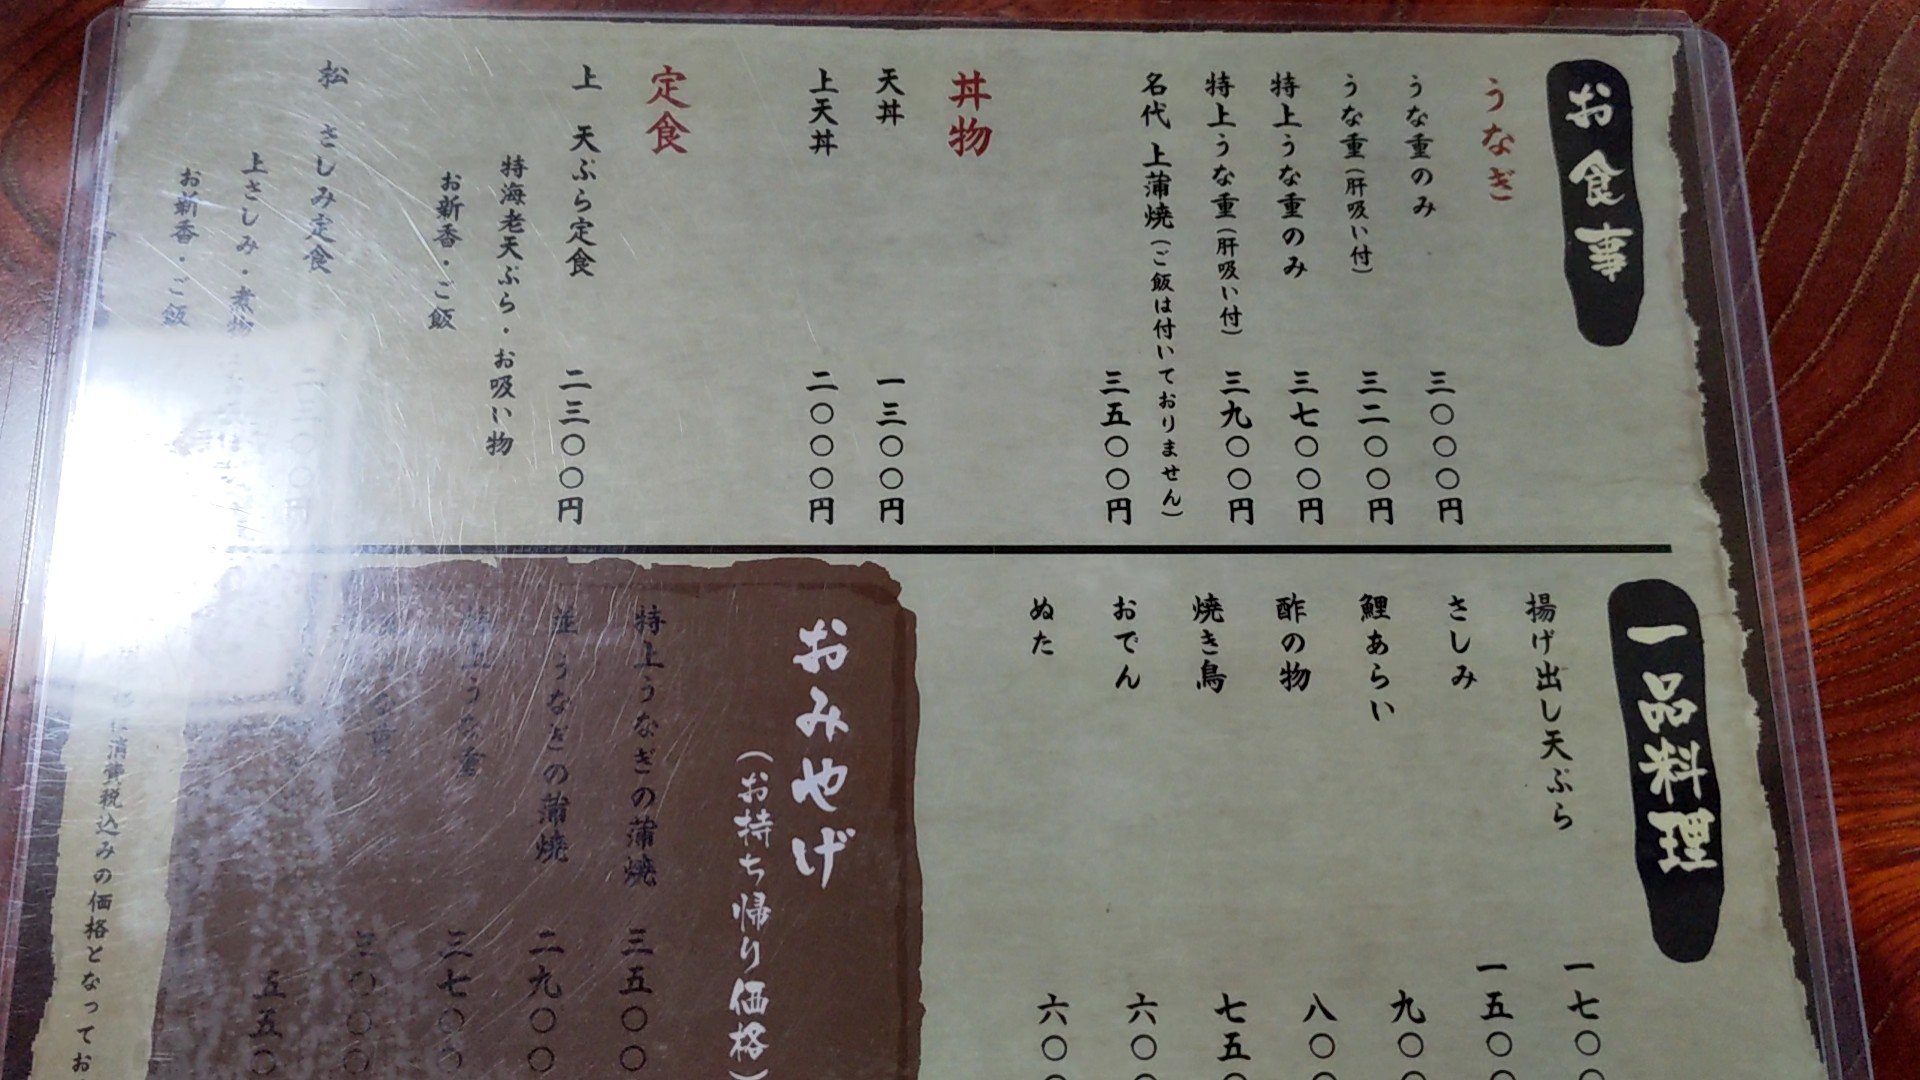 お食事
うなぎ
うな重のみ 三〇〇〇円
うな重(肝吸い付) 三二〇〇円
特上うな重のみ 三七〇〇円
特上うな重(肝吸い付) 三九〇〇円
名代 上蒲焼(ご飯は付いておりません)
三五〇〇円
丼物
天丼 一三〇〇円
上天丼 二〇〇〇円
定食
上 天ぷら定食 二三〇〇円
特海老天ぷら・お吸い物
お新香・ご飯
松 さしみ定食
上さしみ・煮物
お新香・ご飯
一品料理
揚げ出し天ぷら 一七〇
さしみ 一五〇
鯉あらい 九〇
酢の物 八〇
焼き鳥 七五
おでん 六〇
ぬた 六〇
おみやげ
(お持ち帰り価格)
特上うなぎの蒲焼 三五〇〇
並 うなぎの蒲焼 二九〇〇
特上うな重 三七〇〇
な重 三〇〇〇
五五〇
消費税込みの価格となってお